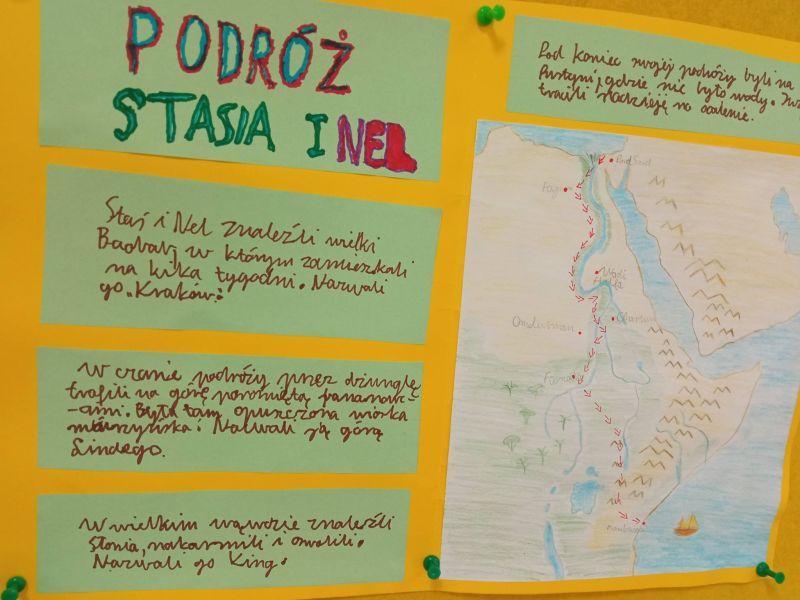 PODRÓŻ
STASIA I NEL
Staś i Nel znaleźli wielki
Baobab, w którym zamieszkali
na kilka tygodni. Nazwali
go „Kraków".
W czasie podróży przez dżunglę
trafili na górę porośniętą bananowc-
-ami. Była tam opuszczona wioska
murzyńska i Nazwali ją górą
Lindego.
W wielkim wąwozie znaleźli
Słonia, nakarmili i uwolnili.
Nazwali go King.
Pod koniec swojej podróży byli na
Pustyni, gdzie nie było wody.
tracili nadzieję na ocalenie.
Port Said
Fajum
Wadi
Halfa
Omdurman
Chartum